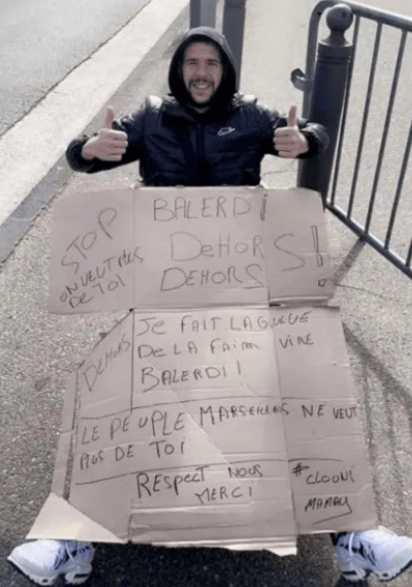 STOP
ON VEUT PLUS
DE TOI
BALERDI
DEHORS!
DEHORS
DEHORS
JE FAIT LA GUEUE
DE LA FAIM VIRE
BALERDI!
LE PEUPLE MARSEILLAIS NE VEUT
PLUS DE TOI
RESPECT NOUS
MERCI
#CLOONI